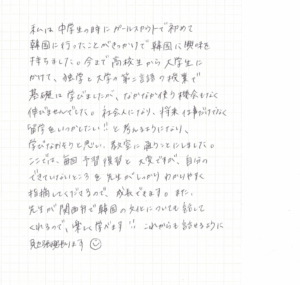 私は中学生の時にガールスカウトで初めて
韓国に行ったことがきっかけで韓国に興味を
持ちました。今まで高校生から大学生に
かけて、独学と大学の第二言語の授業で
基礎は学びましたが、なかなか使う機会もなく
伸びませんでした。社会人になり、将来仕事だけでなく
留学をいつかしたい!! と考えるようになり、
学びなおそうと思い、教室に通うことにしました。
ここでは、毎回予習復習と大変ですが、自分の
できていないところを先生がしっかりわかりやすく
指摘してくださるので、成長できます。また、
先生が関西弁で韓国の文化についても話して
くれるので、楽しく学べます!! これからも話せるように
勉強頑張ります